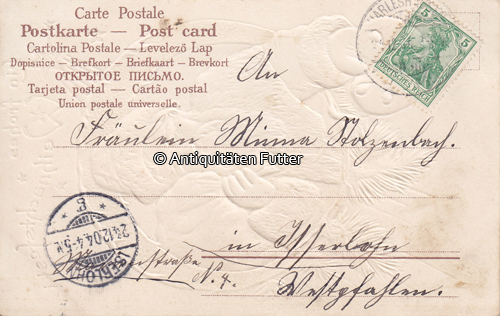 Carte Postale
Postkarte — Post card
Cartolina Postale – Levelező Lap
Dopisnice – Brefkort – Briefkaart – Brevkort
ОТКРЫТОЕ ПИСЬМО.
Tarjeta postal – Cartão postal
Union postale universelle.
5 5
DEUTSCHES REICH
An
Fräulein Minna Stolzenbach.
© Antiquitäten Futter
24.12.04.4-5N.
in Isserlohn
straße N. 4.
Westpfahlen.